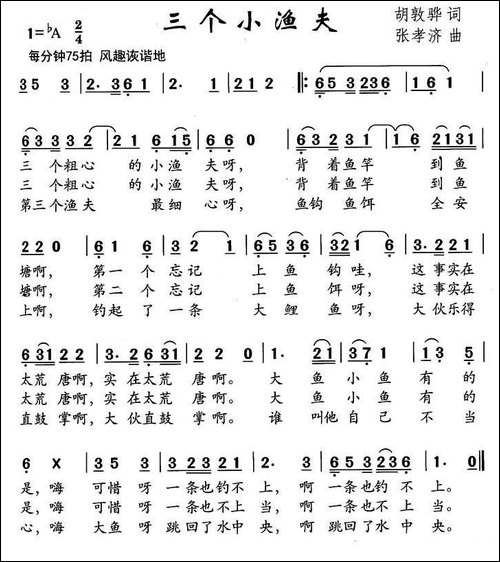 三个小渔夫
胡敦骅 词
张孝济 曲
1=♭A 2/4
每分钟75拍 风趣诙谐地
3 5 3 | 2. 3 6 1 | 2. 1 | 2 1 2 ‖: 6 5 3 2 3 6 | 1 6 1 |
6 3 3 3 2 | 2 1 6 1 5 | 6 6 0 | 6 3 3 3 1 | 1 6 2 1 3 1 |
三 个粗心 的小渔 夫呀， 背着鱼竿 到鱼
三 个粗心 的小渔 夫呀， 背着鱼竿 到鱼
第三个渔夫 最细 心呀， 鱼钩 鱼饵 全安
2 2 0 | 6 1 6 | 3 2 1 | 6 5 3 6 | 3 2 1 6 | 3. 2 2 1 |
塘啊， 第一个忘记 上鱼钩哇， 这事实在
塘啊， 第二个忘记 上鱼饵呀， 这事实在
上啊， 钓起了一条 大鲤鱼呀， 大伙乐得
6 3 1 2 2 | 3. 2 6 3 1 | 2 2 0 | 1. 2 1 | 3 7 1 | 1 3 5 |
太荒唐啊，实在太荒唐啊。 大鱼小鱼有的
太荒唐啊，实在太荒唐啊。 大鱼小鱼有的
直鼓掌啊，大伙直鼓掌啊。 谁叫他自己不当
6 X | 3 5 3 | 3 2 3 2 1 | 2. 3 | 6 5 3 2 3 6 | 1. 0 ‖
是，嗨 可惜呀 一条也钓不上，啊 一条也钓不上。
是，嗨 可惜呀 一条也不上当，啊 一条也不上当。
心，嗨 大鱼呀 跳回了水中央，啊 跳回了水中央。